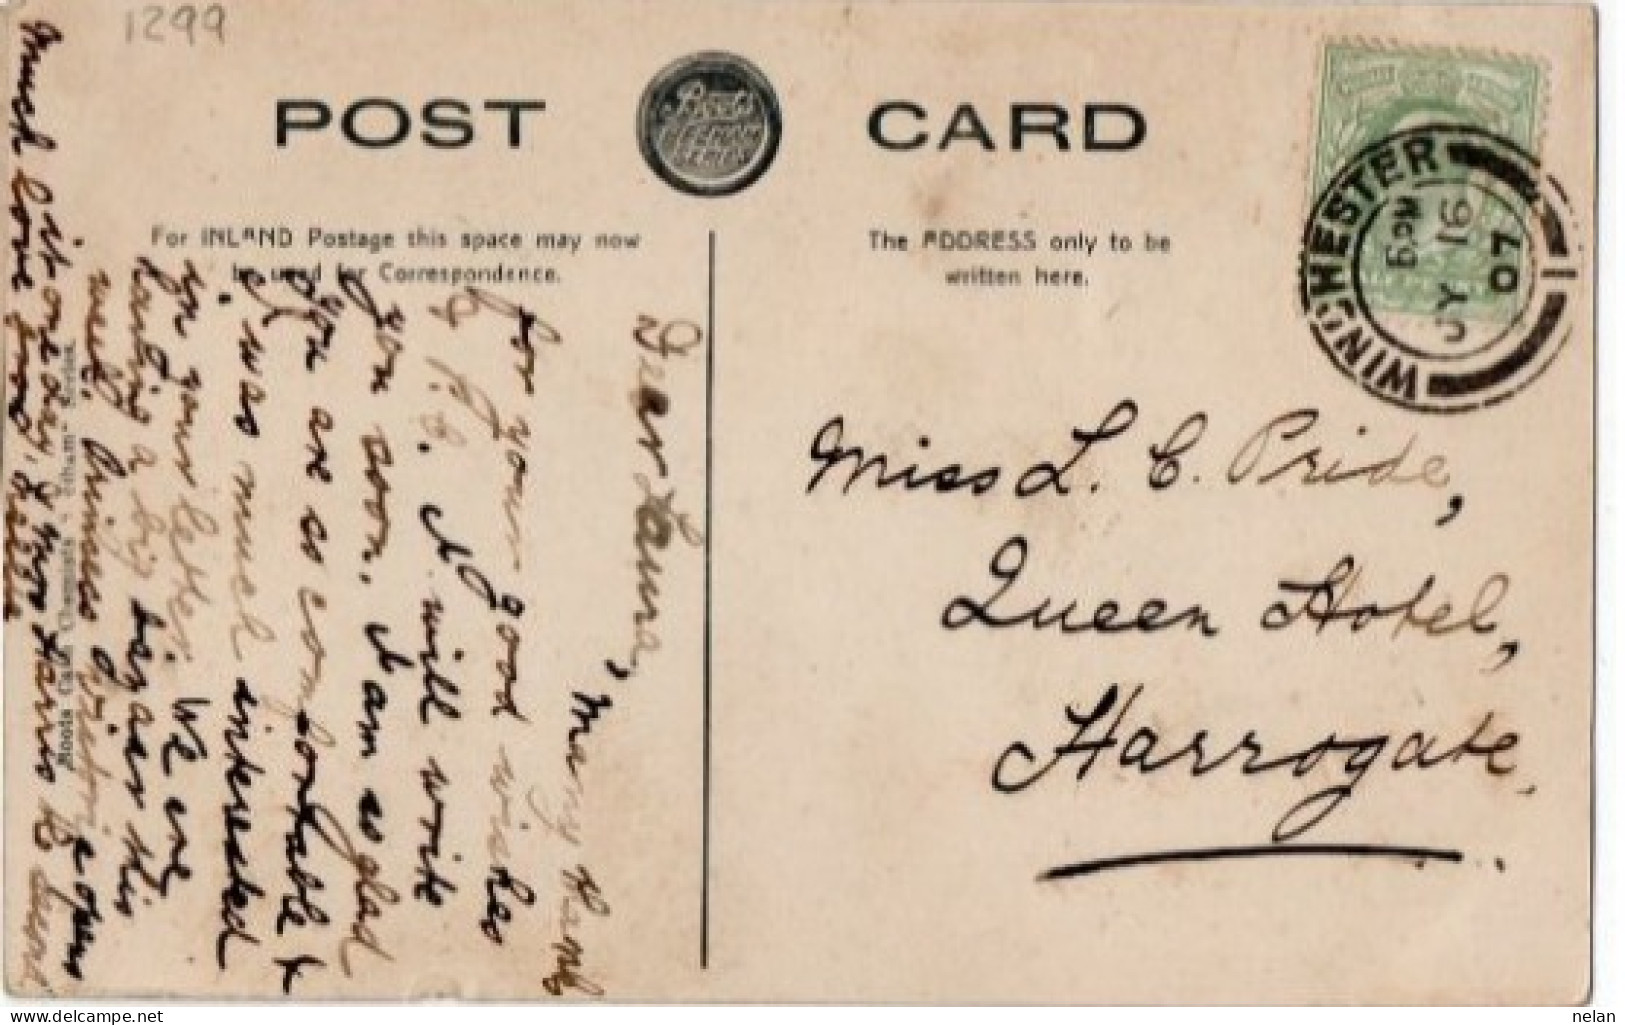 1299
POST CARD
Boots
PELHAM
SERIES
For INLAND Postage this space may now
be used for Correspondence.
The ADDRESS only to be
written here.
WINCHESTER
6 PM
JY 16
07
1
Miss L. C. Pride,
Queen Hotel,
Harrogate.
Dear Laura,
Many thanks
for your good wishes
I will write
you soon. I am so glad
you are so comfortable &
I was much interested
in your letter. We are
having a big bazaar this
week, Princess Victoria opens
it one day.
much love from
Boots Cash Chemists "Pelham" Series.
nelan
delcampe.net